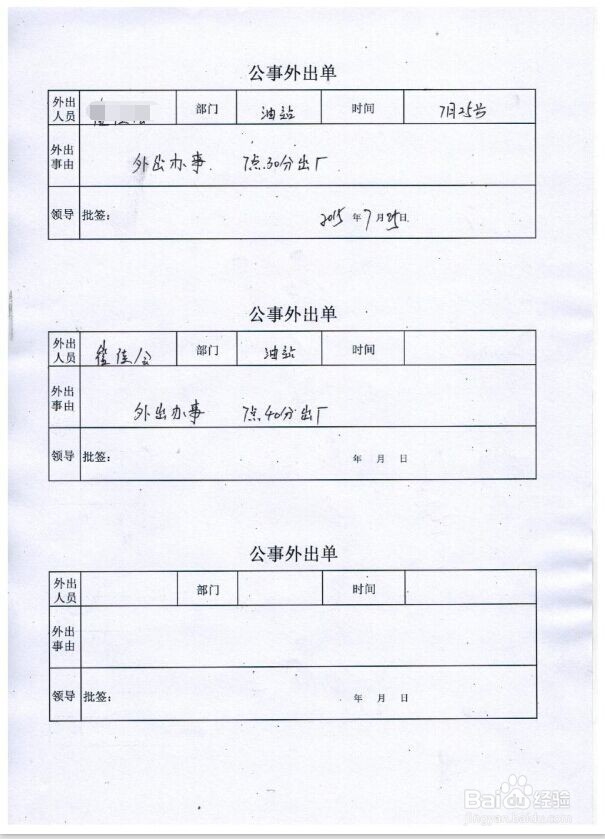 公事外出单
外出人员 部门 油站 时间 7月25号
外出事由 外出办事 7点30分出厂
领导 批签： 2015年7月25日
公事外出单
外出人员 部门 油站 时间
外出事由 外出办事 7点40分出厂
领导 批签： 年 月 日
公事外出单
外出人员 部门 时间
外出事由
领导 批签： 年 月 日
Baidu经验
jingyan.baidu.com